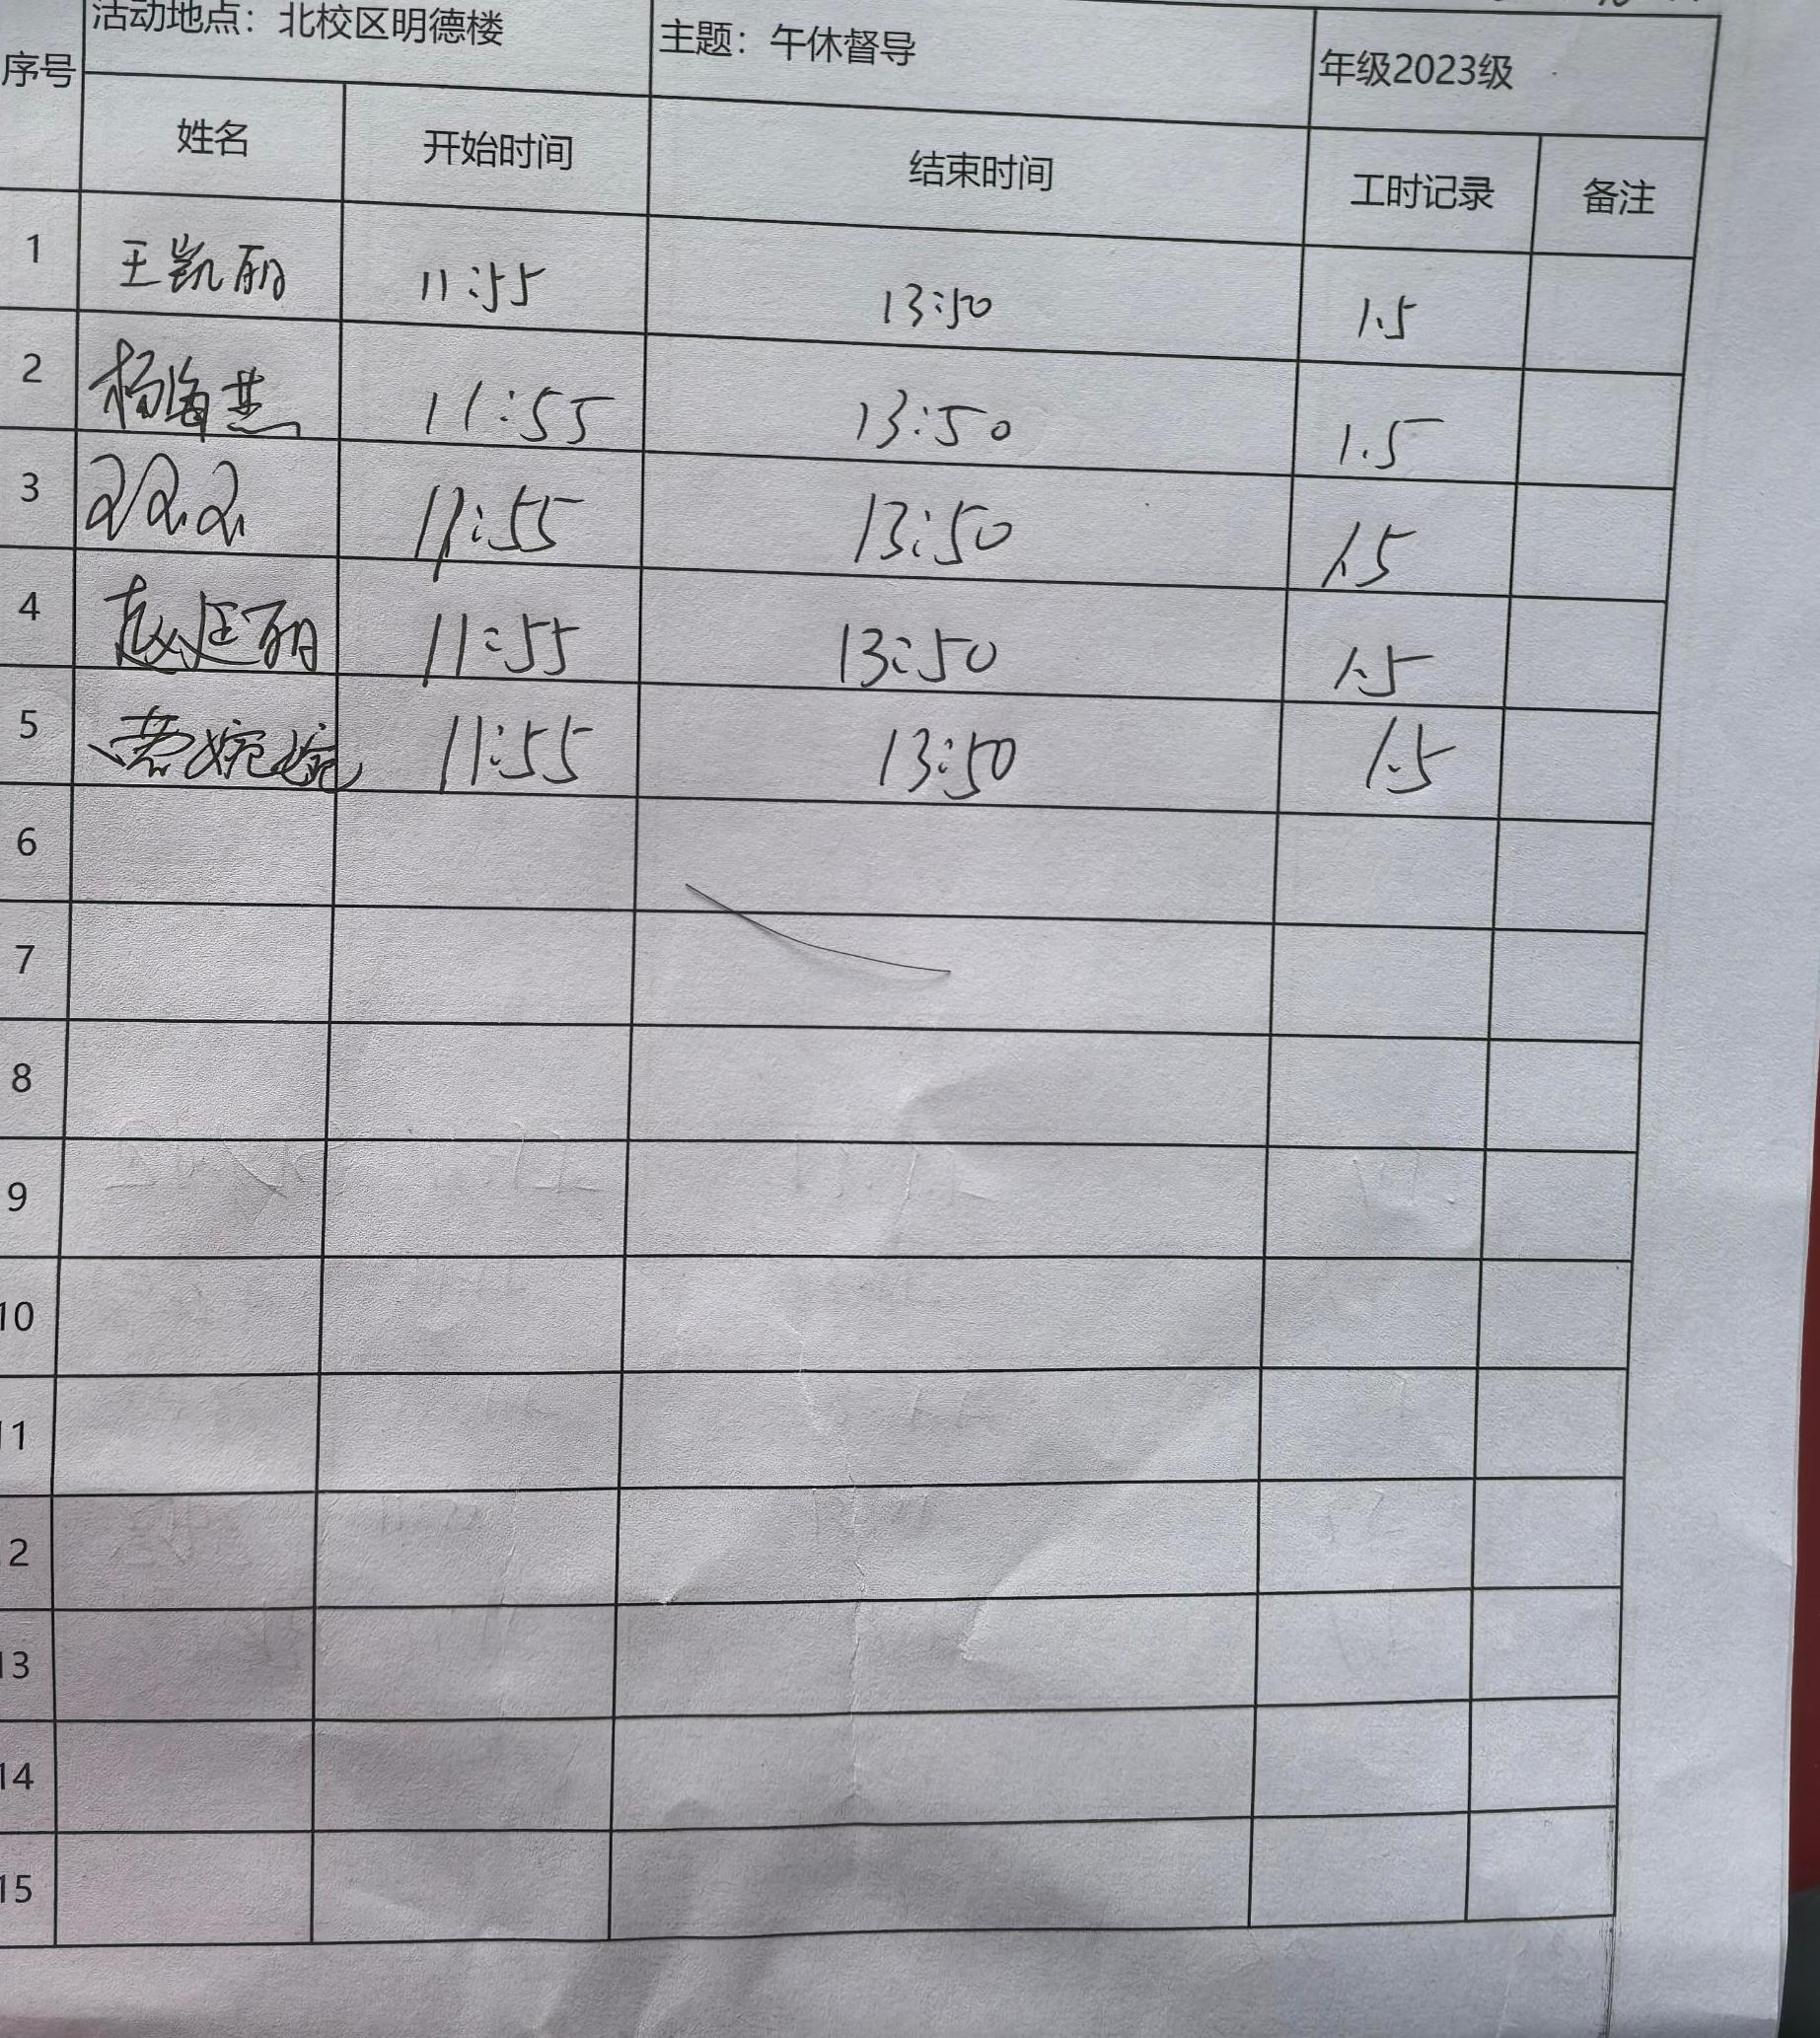 活动地点：北校区明德楼 主题：午休督导 年级2023级
序号 姓名 开始时间 结束时间 工时记录 备注
1 王凯丽 11:55 13:50 1.5
2 杨海燕 11:55 13:50 1.5
3 11:55 13:50 1.5
4 赵廷丽 11:55 13:50 1.5
5 婉婉 11:55 13:50 1.5
6
7
8
9
10
11
12
13
14
15